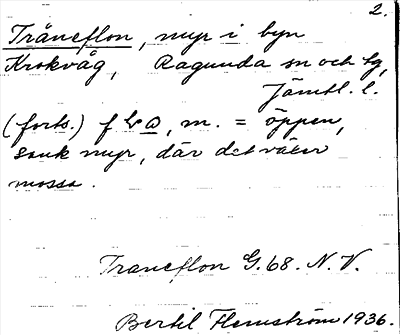 2.
Träneflon, myr i byn
Krokvåg, Ragunda sn och tg,
Jämtl. l.
(forts.) f a, m. = öppen,
sank myr, där det växer
mossa.
Traneflon G.68. N.V.
Bertil Flemström 1936.